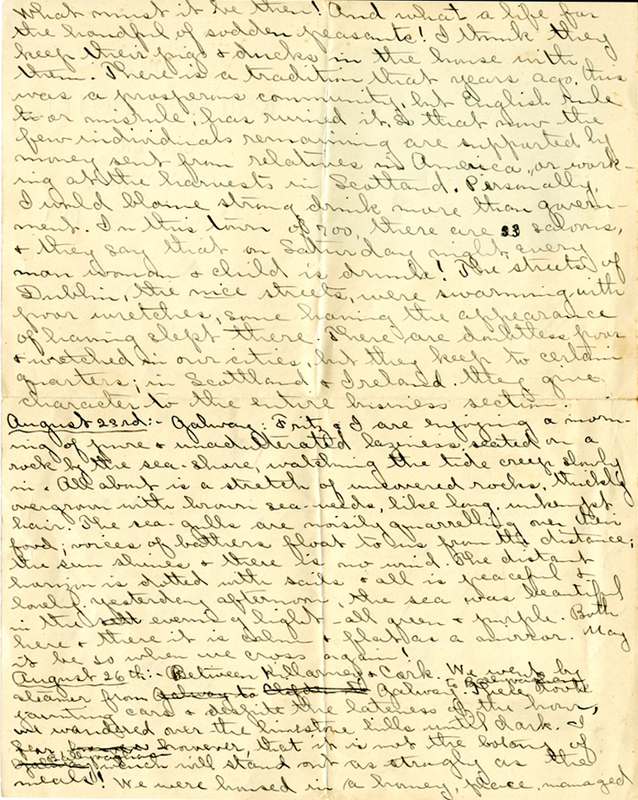 What must it be then! And what a life for
the handful of sodden peasants! I think they
keep their pigs & ducks in the house with
them. There is a tradition that years ago, this
was a prosperous community, but English rule
or misrule, has ruined it, so that now the
few individuals remaining are supported by
money sent from relatives in America, or work-
ing at the harvests in Scotland. Personally,
I would blame strong drink more than govern-
ment. In this town of 700, there are 33 saloons,
& they say that on Saturday night, every
man woman & child is drunk! The streets of
Dublin, the nice streets, were swarming with
poor wretches, some having the appearance
of having slept there. There are doubtless poor
& wretched in our cities, but they keep to certain
quarters; in Scotland & Ireland they give
character to the entire business section.
August 23rd:- Galway: Fritz & I are enjoying a morn-
ing of pure & unadulterated laziness, seated on a
rock by the sea-shore, watching the tide creep slowly
in. All about is a stretch of uncovered rocks, thickly
overgrown with brown sea-weeds, like long, unkempt
hair. The sea-gulls are noisily quarrelling over their
food; voices of bathers float to us from the distance;
the sun shines & there is no wind. The distant
horizon is dotted with sails & all is peaceful &
lovely. Yesterday afternoon, the sea was beautiful
in the evening light - all green & purple. Both
here & there it is calm & flat as a mirror. May
it be so when we cross again!
August 26th:- Between Killarney & Cork. We went by
steamer from Galway to Galway. There took
jaunting cars & despite the lateness of the hour,
we wandered over the limestone hills until dark. I
fear, however, that it is not the botany of
which will stand out as strongly as the
meals! We were housed in a homey place, managed